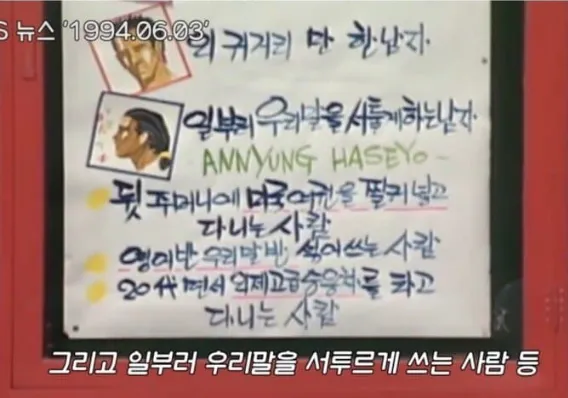 S 뉴스 '1994.06.03'
귀거리 만 한 남자.
일부러 우리말을 서툴게하는 남자.
ANNYUNG HASEYO~
뒷 주머니에 미국여권을 찔러넣고
다니는 사람
영어반 우리말반 섞어쓰는 사람
20代면서 외제고급승용차를 타고
다니는 사람
그리고 일부러 우리말을 서투르게 쓰는 사람 등